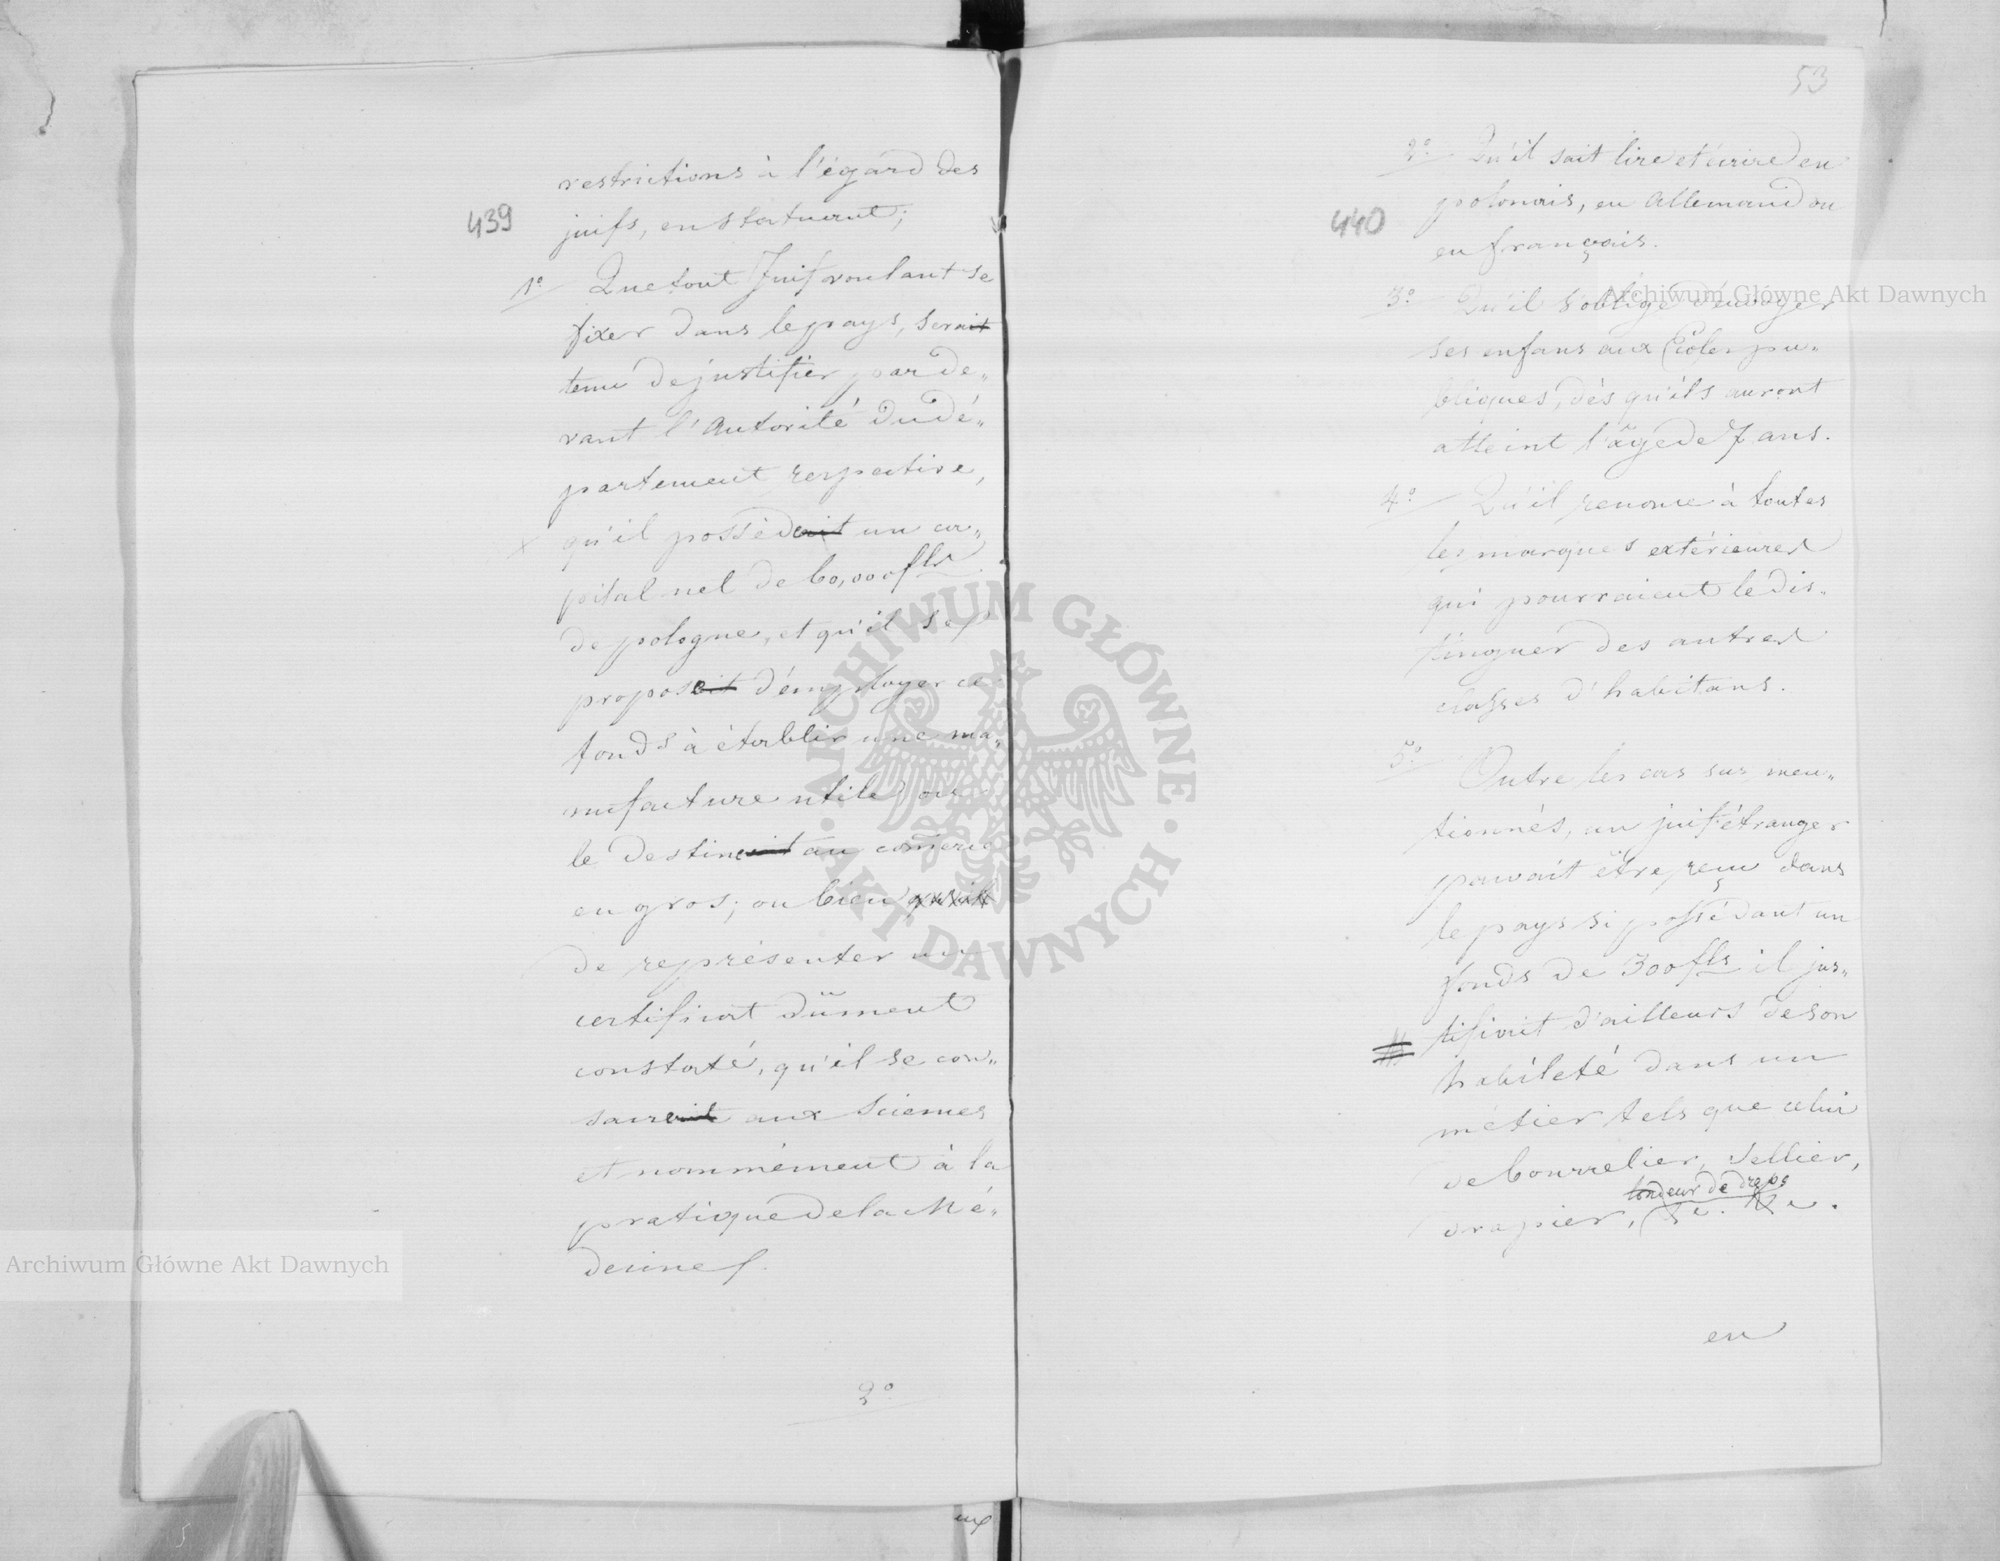 restrictions à l'égard des
439
juifs, en statuant;
1° Que tout Juif voulant se
fixer dans le pays, serait
tenu de justifier par de„
vant l'Autorité du dé„
partement respective,
qu'il possédait un ca„
pital nel de 60,000 fls
de pologne, et qu'il se
proposait d'employer ce
fonds à établir une ma„
nufacture utile ou
le destinait au comerce
en gros; ou bien
de représenter un
certificat dûment
constaté, qu'il se con„
sacrait aux Sciences
et nommément à la
pratique de la Mé„
decine.
2°
53
2° Qu'il sait lire et écrire en
440
polonais, en Allemand ou
en français.
3° Qu'il s'oblige d'envoyer
ses enfans aux Écoles pu„
bliques, dès qu'ils auront
atteint l'âge de 7 ans.
4° Qu'il renonce à toutes
les marques extérieures
qui pourraient le dis„
tinguer des autres
classes d'habitans.
5° Outre les cas sus men„
tionnés, un juif étranger
pouvait être reçu dans
le pays si possédant un
fonds de 300 fls il jus„
tifioit d'ailleurs de son
habileté dans un
métier tels que celui
de bourrelier, Sellier,
tondeur de draps
drapier,
en
Archiwum Główne Akt Dawnych
Archiwum Główne Akt Dawnych
ARCHIWUM GŁÓWNE · AKT DAWNYCH ·